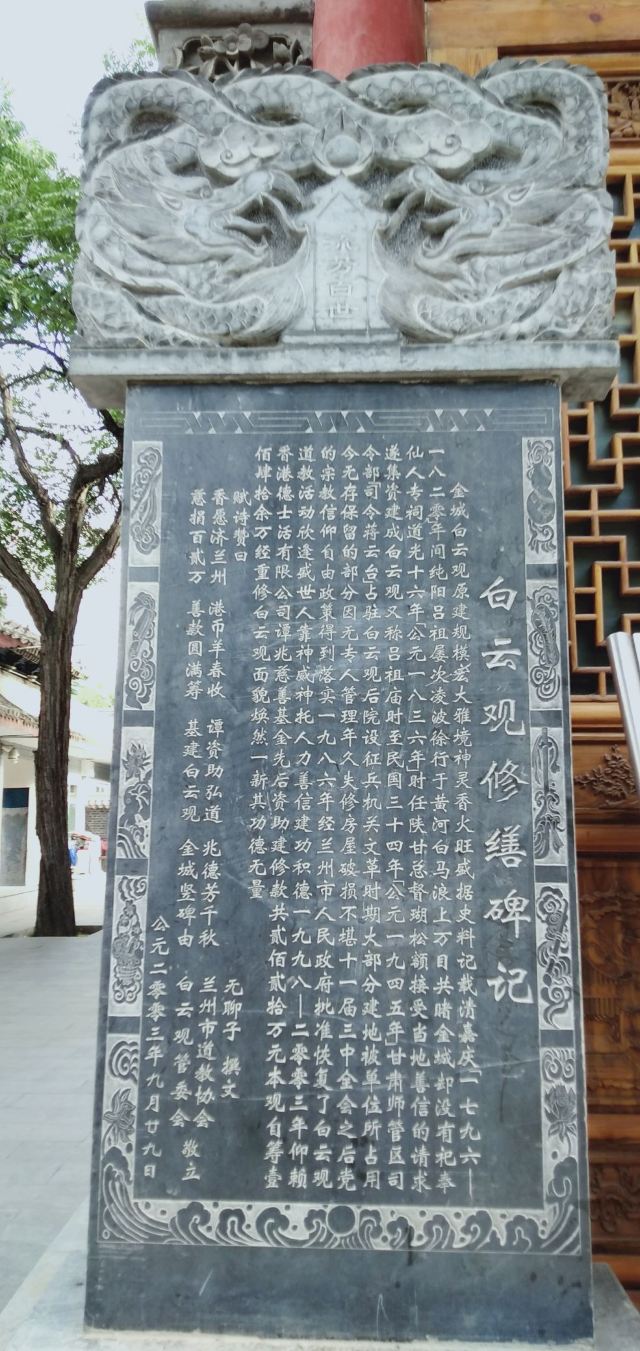 芳百世
白云观修缮碑记
金城白云观原建规模宏大雅境神灵香火旺盛据史料记载清嘉庆「一七九六—
一八二零」年间纯阳吕祖屡次凌波徐行于黄河白马浪上万目共睹金城却没有祀奉
仙人专祠道光十六年「公元一八三六年」时任陕甘总督瑚松额接受当地善信的请求
遂集资建成白云观又称吕祖庙时至民国三十四年「公元一九四五年」甘肃师管区司
令部司令蒋云台占驻白云观后院设征兵机关文革时期大部分建地被单位所占用
今无存保留的部分因无专人管理年久失修房屋破损不堪十一届三中全会之后党
的宗教信仰自由政策得到落实一九八六年经兰州市人民政府批准恢复了白云观
道教活动欣逢盛世人靠神威神托人力善信建功积德一九九八—二零零三年仰赖
香港德士活有限公司谭兆慈善基金先后资助建修款共贰佰贰拾万元本观自筹壹
佰肆拾余万经重修白云观面貌焕然一新其功德无量
赋诗赞曰
香愿济兰州 港币羊春收 谭资助弘道 兆德芳千秋
慈捐百贰万 善款圆满筹 基建白云观 金城竖碑由
无聊子 撰文
兰州市道教协会
白云观管委会 敬立
公元二零零三年九月廿九日